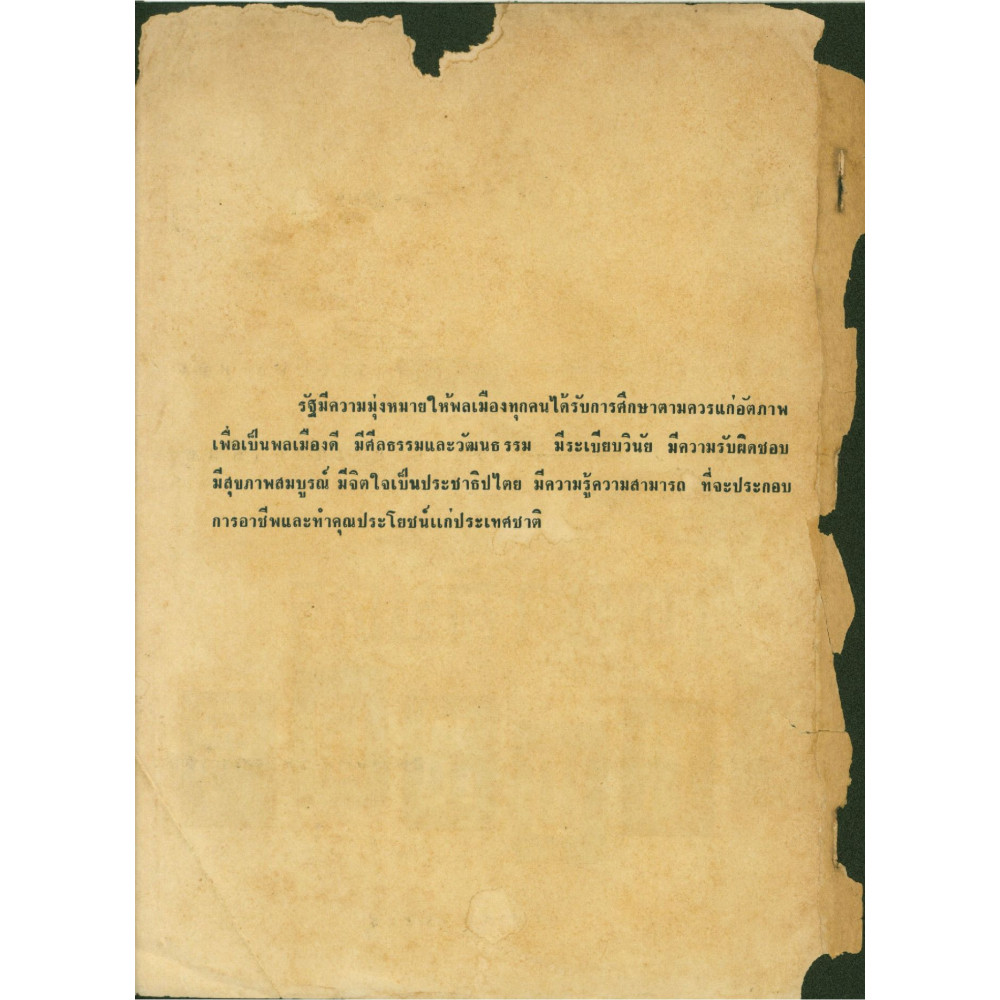 รัฐมีความมุ่งหมายให้พลเมืองทุกคนได้รับการศึกษาตามควรแก่อัตภาพ
เพื่อเป็นพลเมืองดี มีศีลธรรมและวัฒนธรรม มีระเบียบวินัย มีความรับผิดชอบ
มีสุขภาพสมบูรณ์ มีจิตใจเป็นประชาธิปไตย มีความรู้ความสามารถ ที่จะประกอบ
การอาชีพและทำคุณประโยชน์แก่ประเทศชาติ